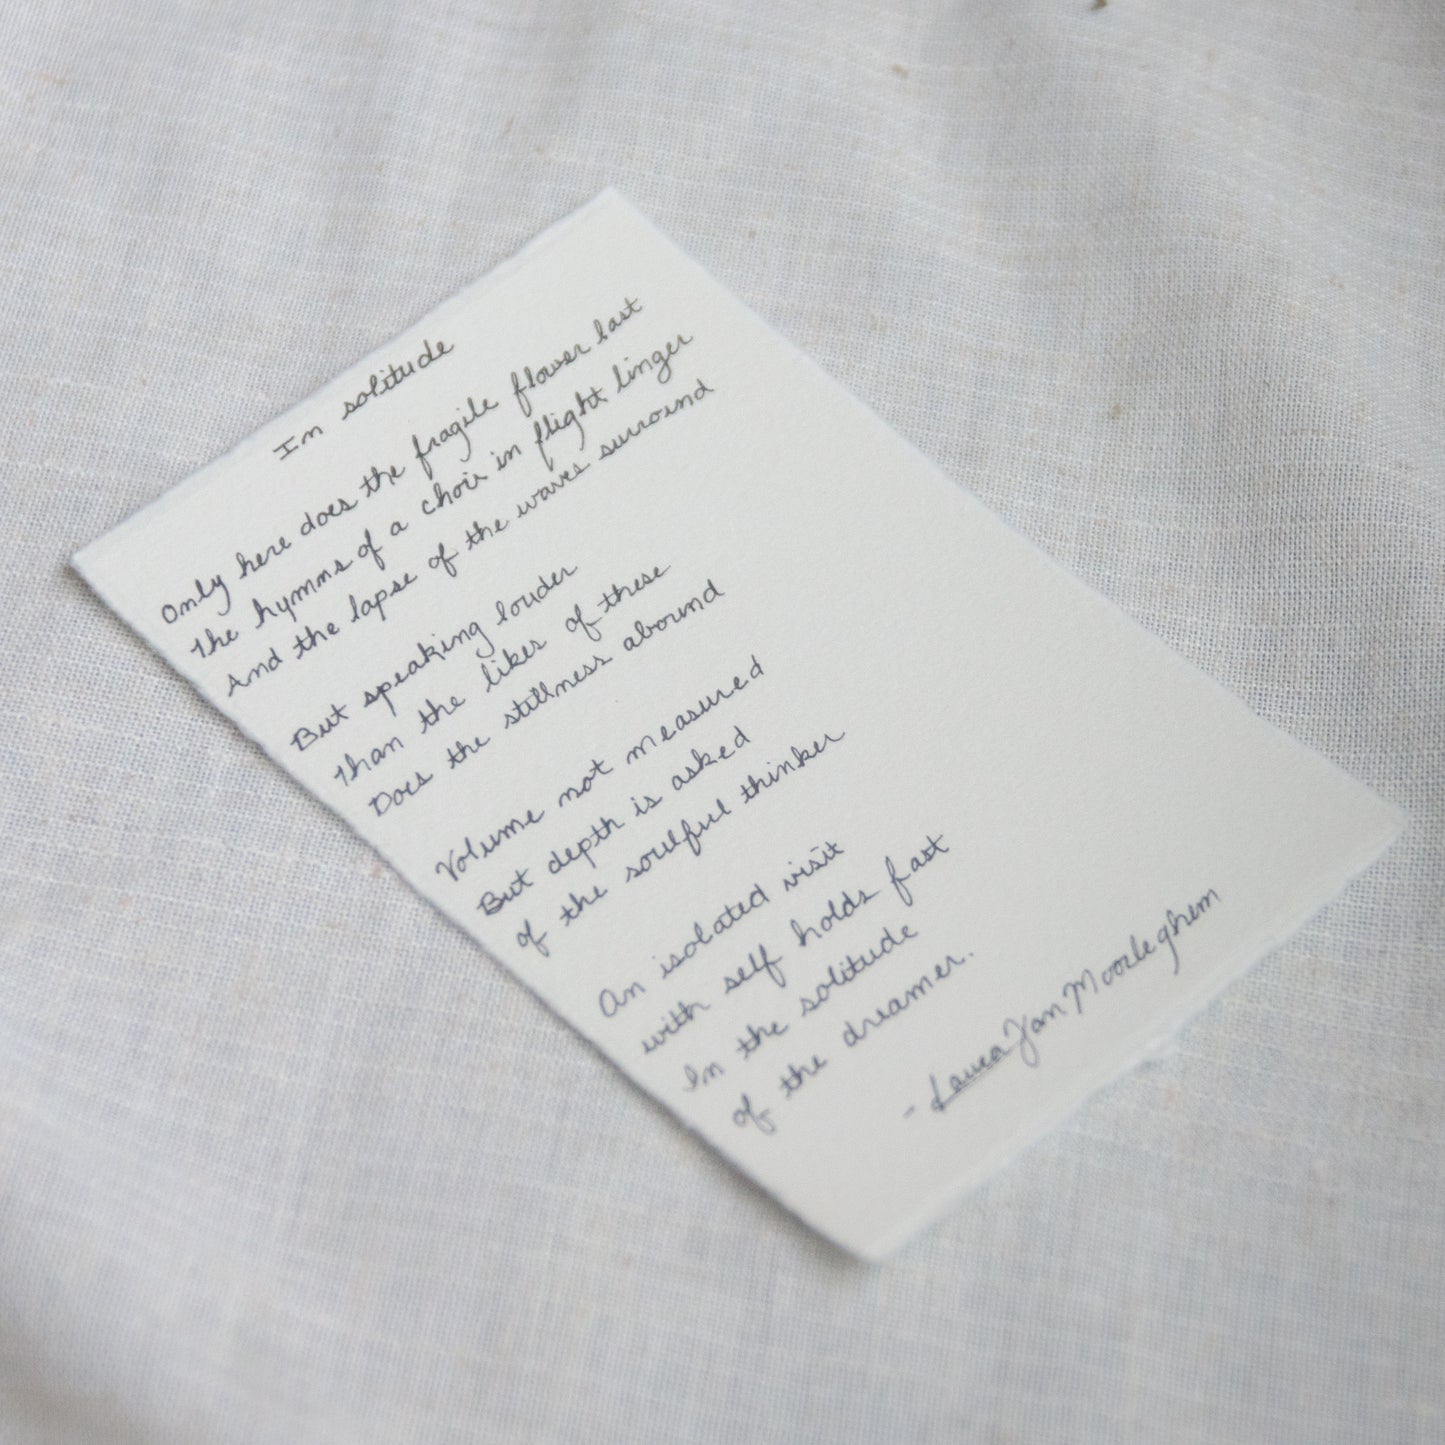 In solitude
Only here does the fragile flower last
The hymns of a choir in flight linger
And the lapse of the waves surround
But speaking louder
Than the likes of these
Does the stillness abound
Volume not measured
But depth is asked
of the soulful thinker
An isolated visit
with self holds fast
In the solitude
of the dreamer.
- Laura Van Moorleghem